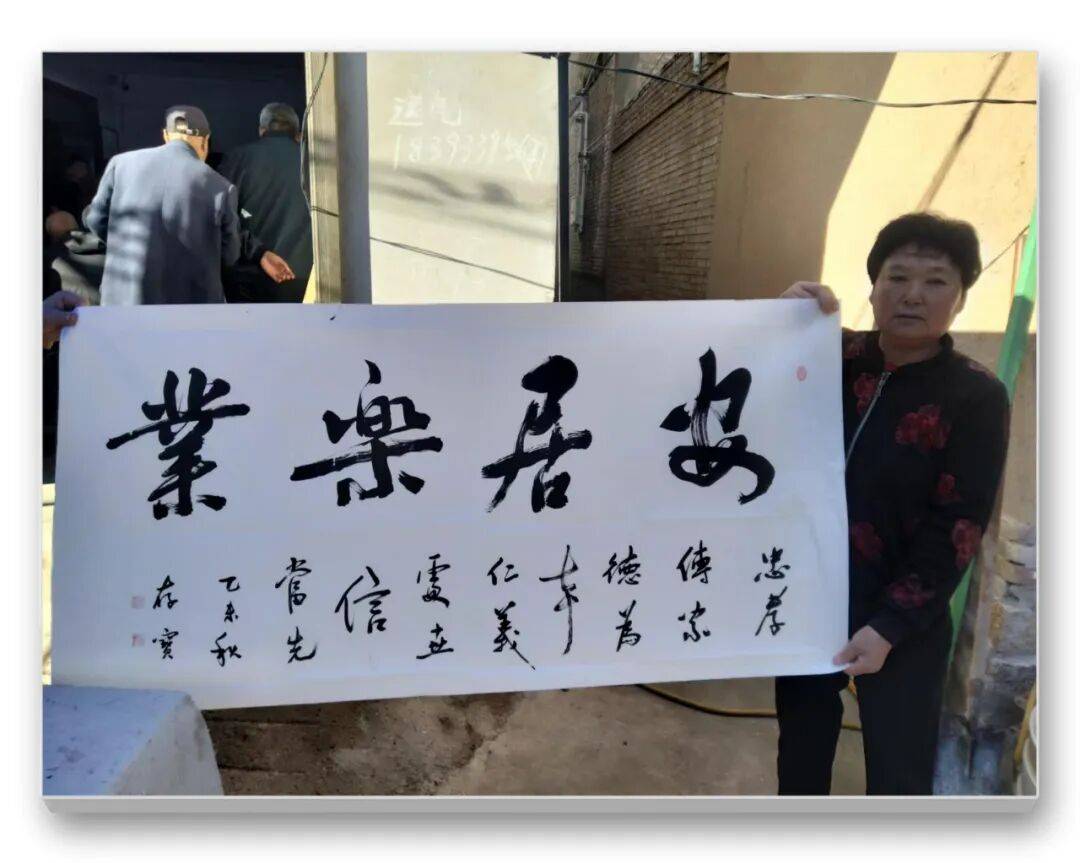 送气
安居樂業
忠孝
傳家
德為
本
仁義
處世
信
當先
乙未秋
存寶